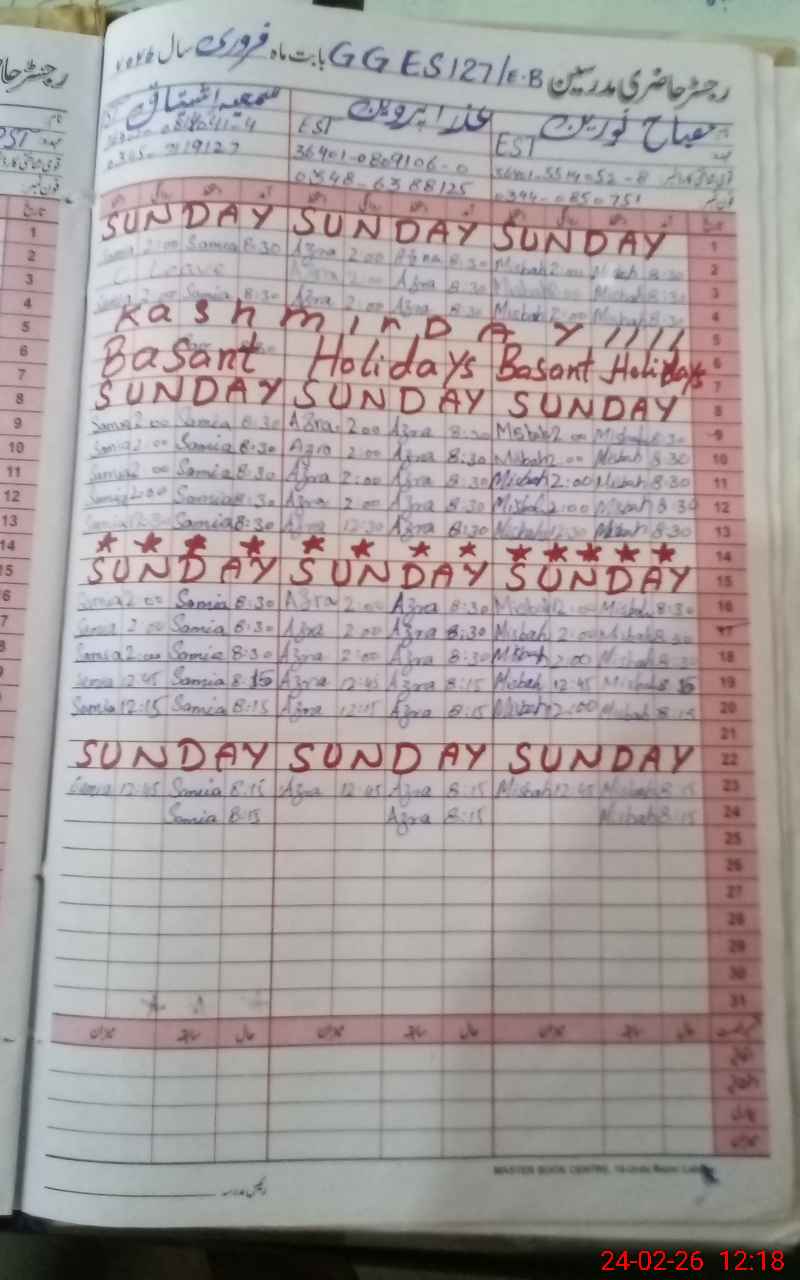 رجسٹر حاضری مدرسین GGES 127/E.B بابت ماہ فروری سال
مصباح نورین عذرا پروین سمعیہ اشتیاق
EST EST
36401-0809106-0
0344-0850751 0348-6388125
SUNDAY SUNDAY SUNDAY 1
Samia 2:00 Samia 8:30 Azra 2:00 Azra 8:30 Misbah 2:00 Misbah 8:30 2
C Leave Azra 2:00 Azra 8:30 Misbah 2:00 Misbah 8:30 3
Samia 2:00 Samia 8:30 Azra 2:00 Azra 8:30 Misbah 2:00 Misbah 8:30 4
KashmirDAY //// 5
Basant Holidays Basant Holidays 6
7
SUNDAY SUNDAY SUNDAY 8
Samia 2:00 Samia 8:30 Azra 2:00 Azra 8:30 Misbah 2:00 Misbah 8:30 9
Samia 2:00 Samia 8:30 Azra 2:00 Azra 8:30 Misbah 2:00 Misbah 8:30 10
Samia 2:00 Samia 8:30 Azra 2:00 Azra 8:30 Misbah 2:00 Misbah 8:30 11
Samia 2:00 Samia 8:30 Azra 2:00 Azra 8:30 Misbah 2:00 Misbah 8:30 12
Samia 12:30 Samia 8:30 Azra 12:30 Azra 8:30 Misbah 12:30 Misbah 8:30 13
★ ★ ★ ★ ★ ★ ★ ★ ★ ★ ★ ★ ★ 14
SUNDAY SUNDAY SUNDAY 15
Samia 2:00 Samia 8:30 Azra 2:00 Azra 8:30 Misbah 2:00 Misbah 8:30 16
Samia 2:00 Samia 8:30 Azra 2:00 Azra 8:30 Misbah 2:00 Misbah 8:30 17
Samia 2:00 Samia 8:30 Azra 2:00 Azra 8:30 Misbah 2:00 Misbah 8:30 18
Samia 12:45 Samia 8:15 Azra 12:45 Azra 8:15 Misbah 12:45 Misbah 8:15 19
Samia 12:15 Samia 8:15 Azra 12:15 Azra 8:15 Misbah 12:00 Misbah 8:15 20
21
SUNDAY SUNDAY SUNDAY 22
Samia 12:45 Samia 8:15 Azra 12:45 Azra 8:15 Misbah 12:45 Misbah 8:15 23
Samia 8:15 Azra 8:15 Misbah 8:15 24
25
26
27
28
29
30
31
میزان سابقہ حال میزان سابقہ حال میزان سابقہ حال
میزان
MASTER BOOK CENTRE, 10-Urdu Bazar
رئیس مدرسہ
24-02-26 12:18